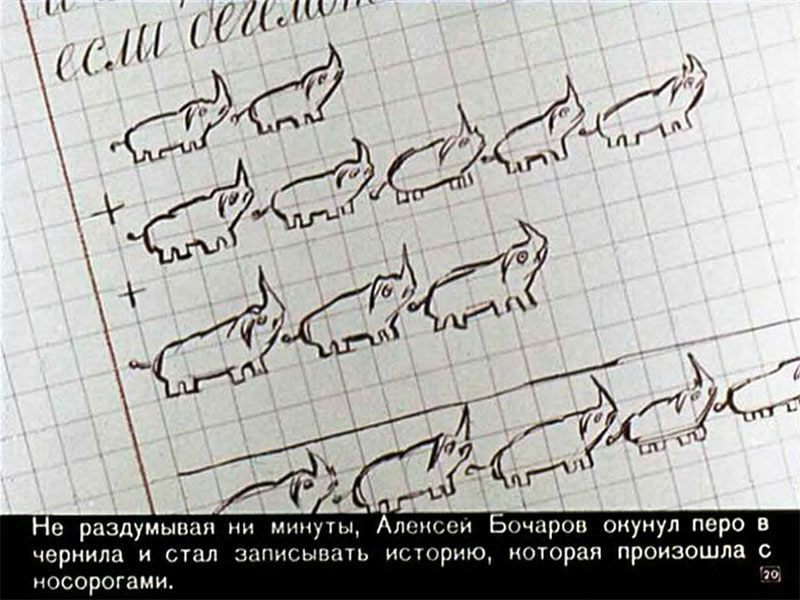 если бегемот
+
+
Не раздумывая ни минуты, Алексей Бочаров окунул перо в
чернила и стал записывать историю, которая произошла с
носорогами.
20